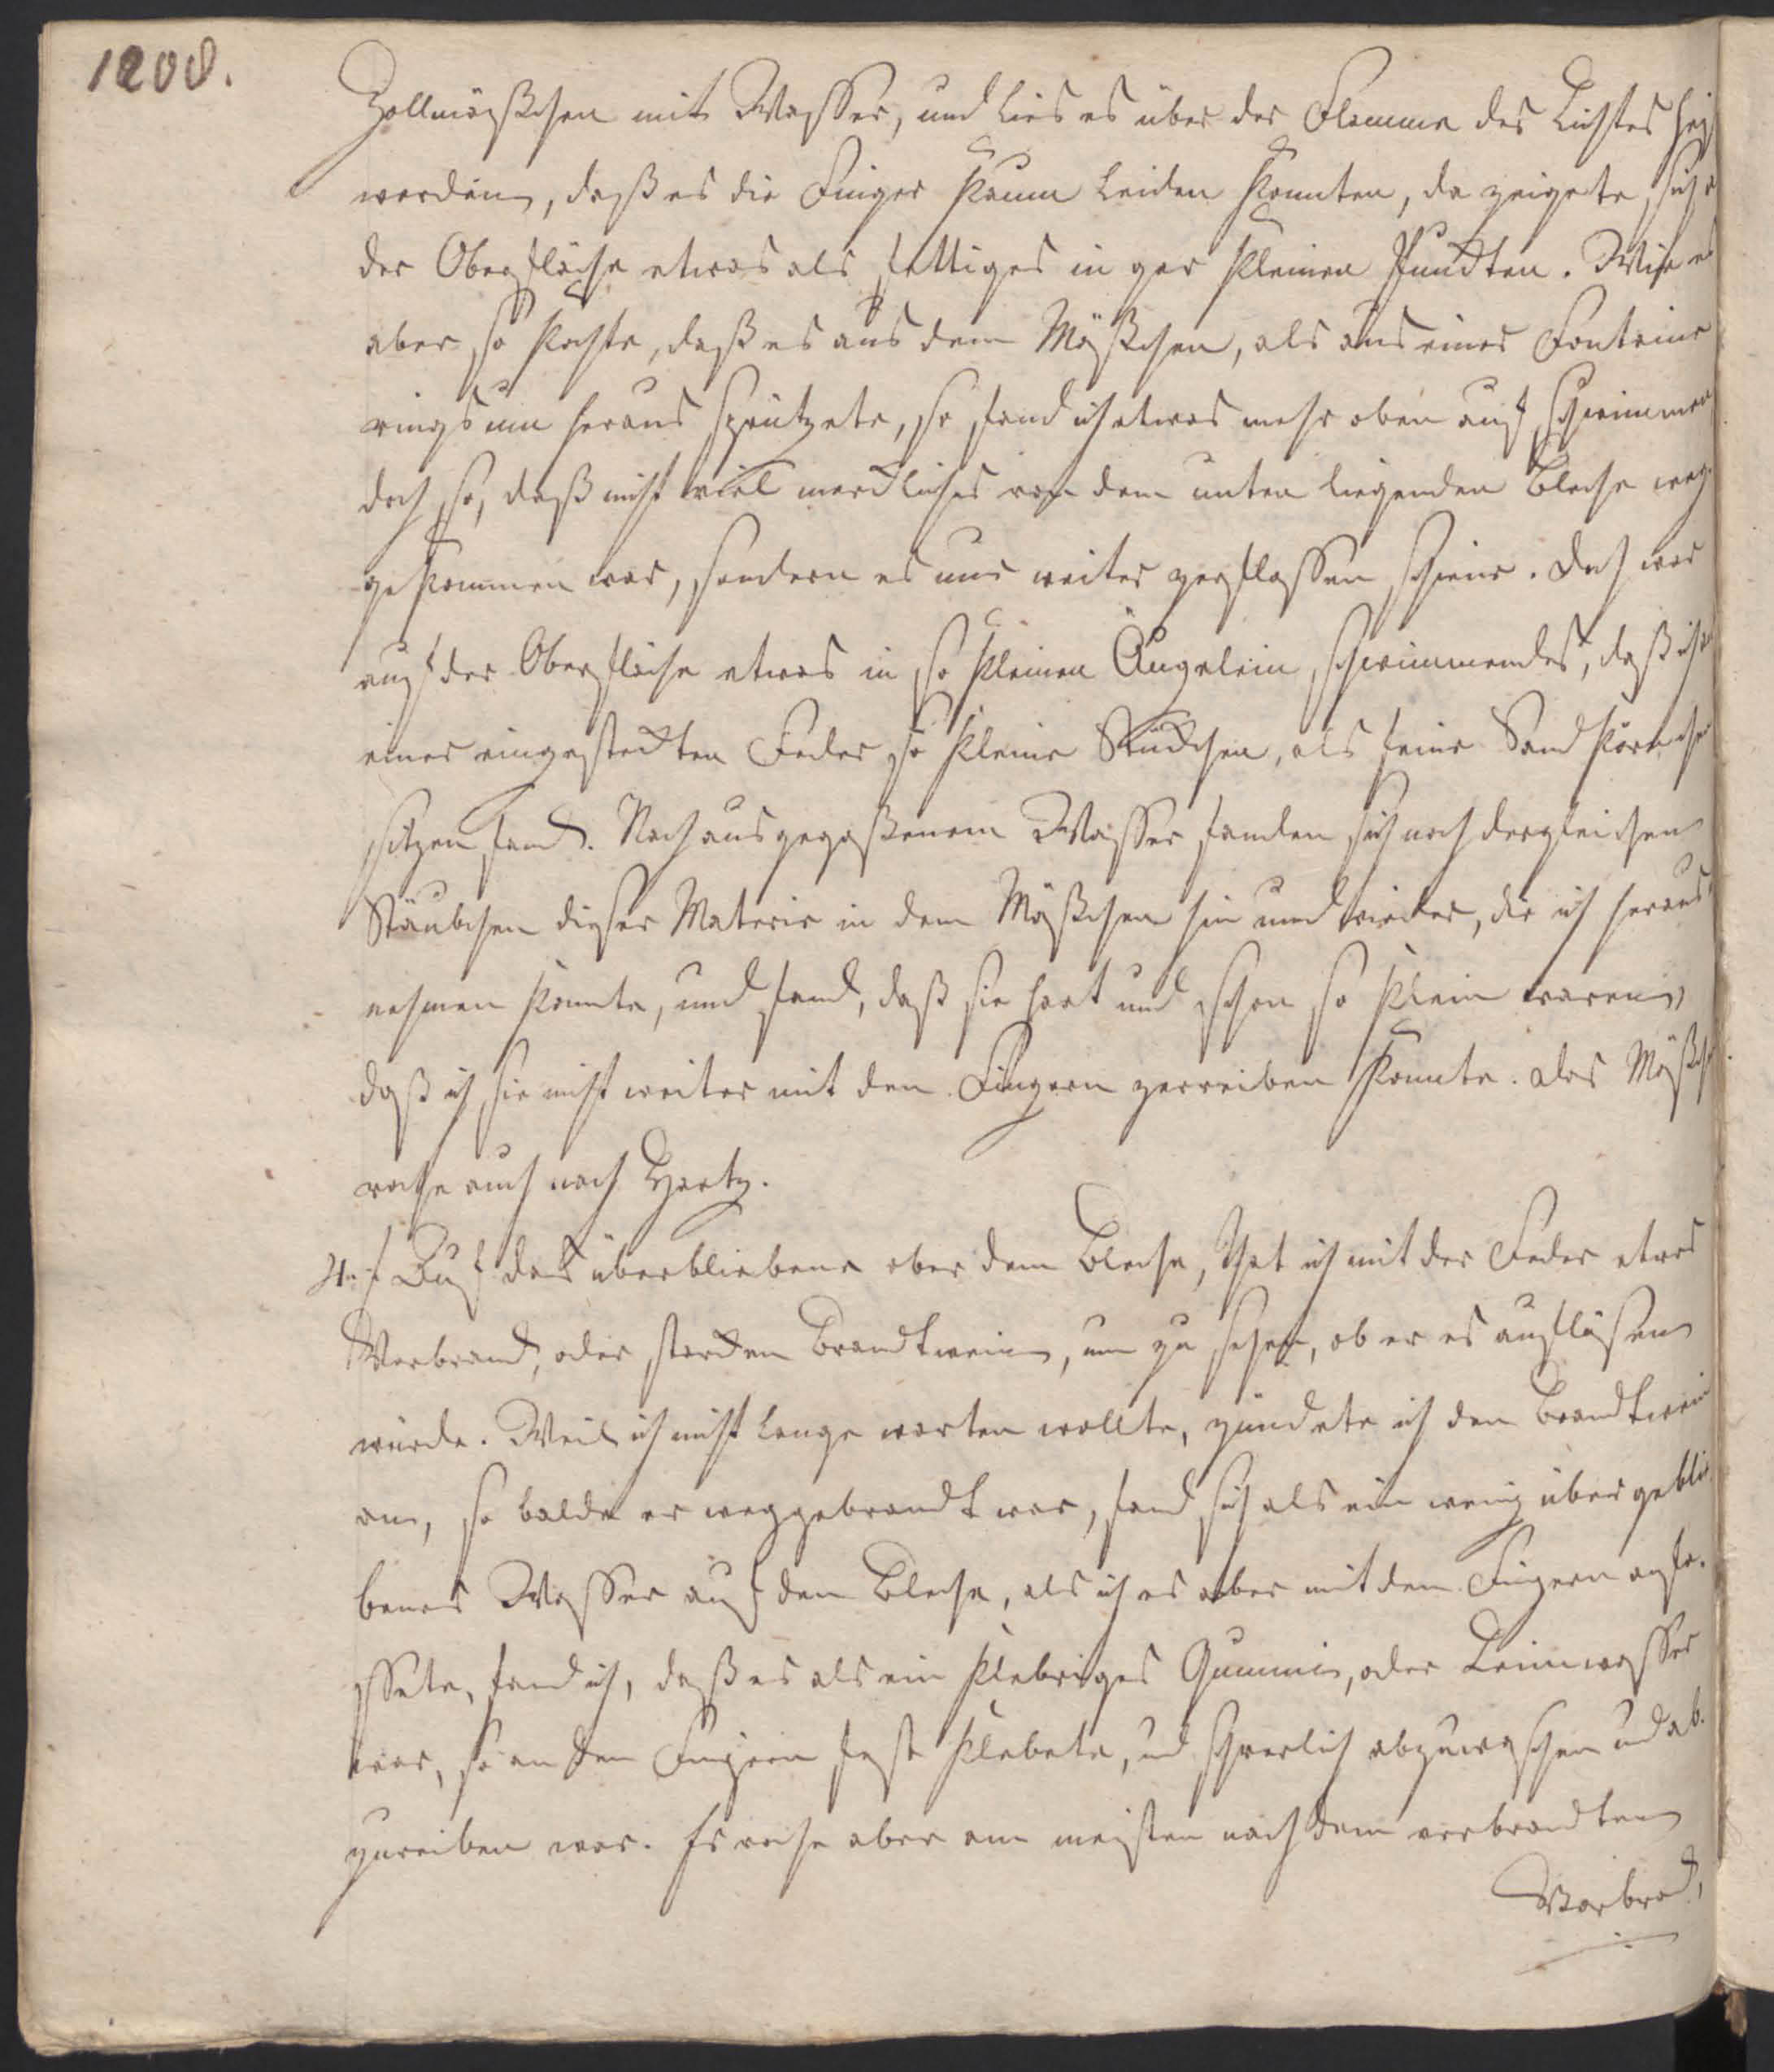 1208.
Zollmäßchen mit Wasser, und lies es über der Flamme des Lichtes heiß
werden, daß es die Finger kaum leiden konnten, da zeigete sich a
der Oberfläche etwas als fettiges in gar kleinen Puncten. Wie es
aber so kochte, daß es aus dem Mäßchen, als aus einer Fontaine
rings um heraus sprützete, so fand ich etwas mehr oben auf schwimmen
doch so, daß nicht viel merckliches von dem unten liegenden Bleche weg-
gekommen war, sondern es nur weiter zerflossen schiene. Doch war
auf der Oberfläche etwas in so kleinen Äugelein schwimmendes, daß ich an
einer eingesteckten Feder so kleine Stückchen, als feine Sandkörnchen
sitzen fand. Nach ausgegoßenem Wasser fanden sich noch dergleichen
Stäubchen dieser Materie in dem Mäßchen hin und wieder, die ich heraus-
nehmen konnte, und fand, daß sie hart und schon so klein waren,
daß ich sie nicht weiter mit den Fingern zerreiben konnte. Das Mäßch
roche auch nach Hartz.
4. Auf das überbliebene aber dem Bleche, that ich mit der Feder etwas
Vorbrand, oder starcken Brandtwein, um zu sehen, ob er es auflösen
würde. Weil ich nicht lange warten wollte, zündete ich den Brandtwein
an, so balde er weggebrandt war, fand sich als ein wenig übergeblie-
benes Wasser auf dem Bleche, als ich es aber mit den Fingern anfa-
ssete, fand ich, daß es als ein klebriges Gummi, oder Leimwasser
war, so an den Fingern fest klebete, und schwerlich abzuwaschen und ab-
zureiben war. Es roche aber am meisten nach dem verbrandten
Vorbrand,